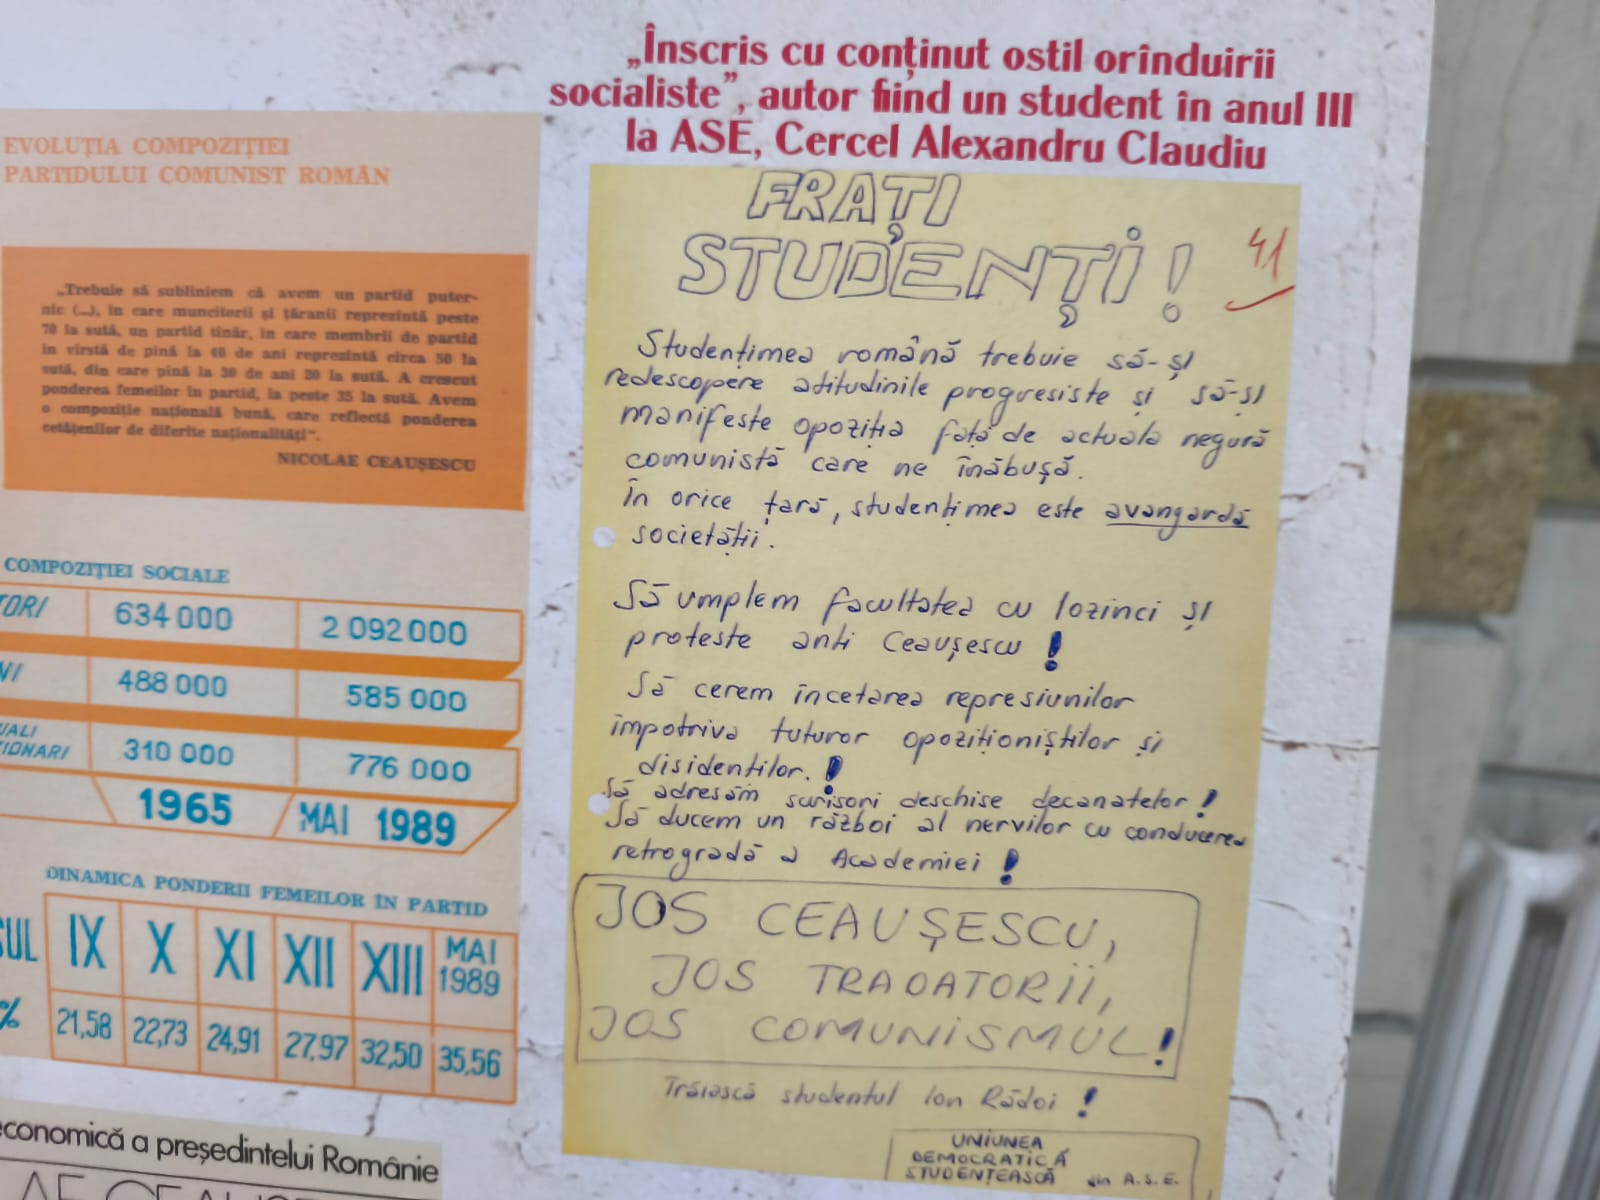 „Înscris cu conținut ostil orînduirii
socialiste”, autor fiind un student în anul III
la ASE, Cercel Alexandru Claudiu
EVOLUȚIA COMPOZIȚIEI
PARTIDULUI COMUNIST ROMÂN
„Trebuie să subliniem că avem un partid puter-
nic (...), în care muncitorii și țăranii reprezintă peste
70 la sută, un partid tînăr, în care membrii de partid
în vîrstă de pînă la 40 de ani reprezintă circa 50 la
sută, din care pînă la 30 de ani 20 la sută. A crescut
ponderea femeilor în partid, la peste 35 la sută. Avem
o compoziție națională bună, care reflectă ponderea
cetățenilor de diferite naționalități”.
NICOLAE CEAUȘESCU
COMPOZIȚIEI SOCIALE
TORI 634 000 2 092 000
NI 488 000 585 000
UALI
ȚIONARI 310 000 776 000
1965 MAI 1989
DINAMICA PONDERII FEMEILOR ÎN PARTID
SUL IX X XI XII XIII MAI 1989
% 21,58 22,73 24,91 27,97 32,50 35,56
economică a președintelui Românie
FRAȚI
STUDENȚI!
41
Studențimea română trebuie să-și
redescopere atitudinile progresiste și să-și
manifeste opoziția față de actuala negură
comunistă care ne înăbușă.
În orice țară, studențimea este avangarda
societății.
Să umplem facultatea cu lozinci și
proteste anti Ceaușescu!
Să cerem încetarea represiunilor
împotriva tuturor opoziționiștilor și
disidenților.!
Să adresăm scrisori deschise decanatelor!
Să ducem un război al nervilor cu conducerea
retrogradă a Academiei!
JOS CEAUȘESCU,
JOS TRADATORII,
JOS COMUNISMUL!
Trăiască studentul Ion Rădoi!
UNIUNEA
DEMOCRATICĂ
STUDENȚEASCĂ din A.S.E.